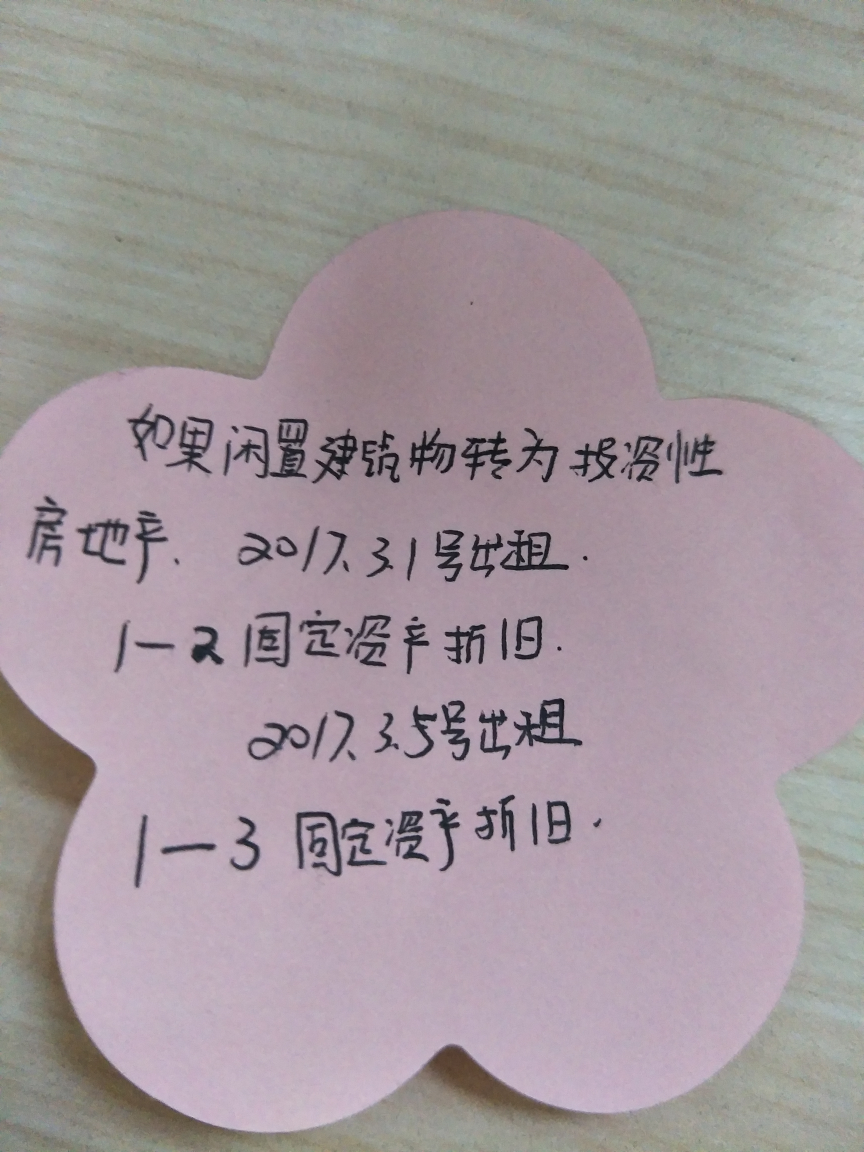 如果闲置建筑物转为投资性
房地产. 2017.3.1号出租.
1-2固定资产折旧.
2017.3.5号出租
1-3 固定资产折旧.